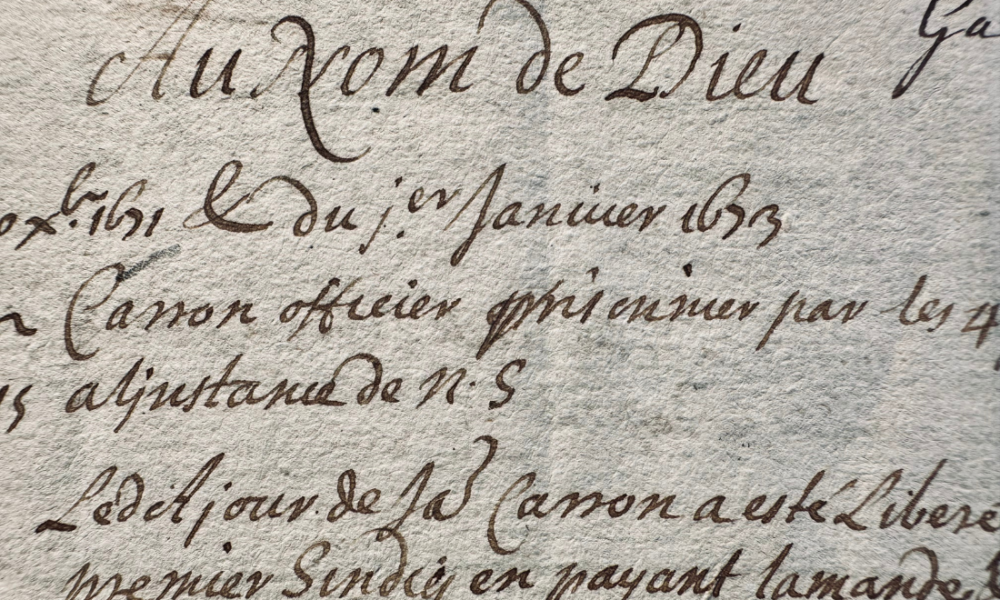 Ga
Au Nom de Dieu
xbr. 1671 & du j.er Janiuer 1673
Carron officier prisonnier par les 4
15 a ljnstance de N. S
Ledit jour de Ja Carron a esté Libere
premier Sindiq en payant lamande